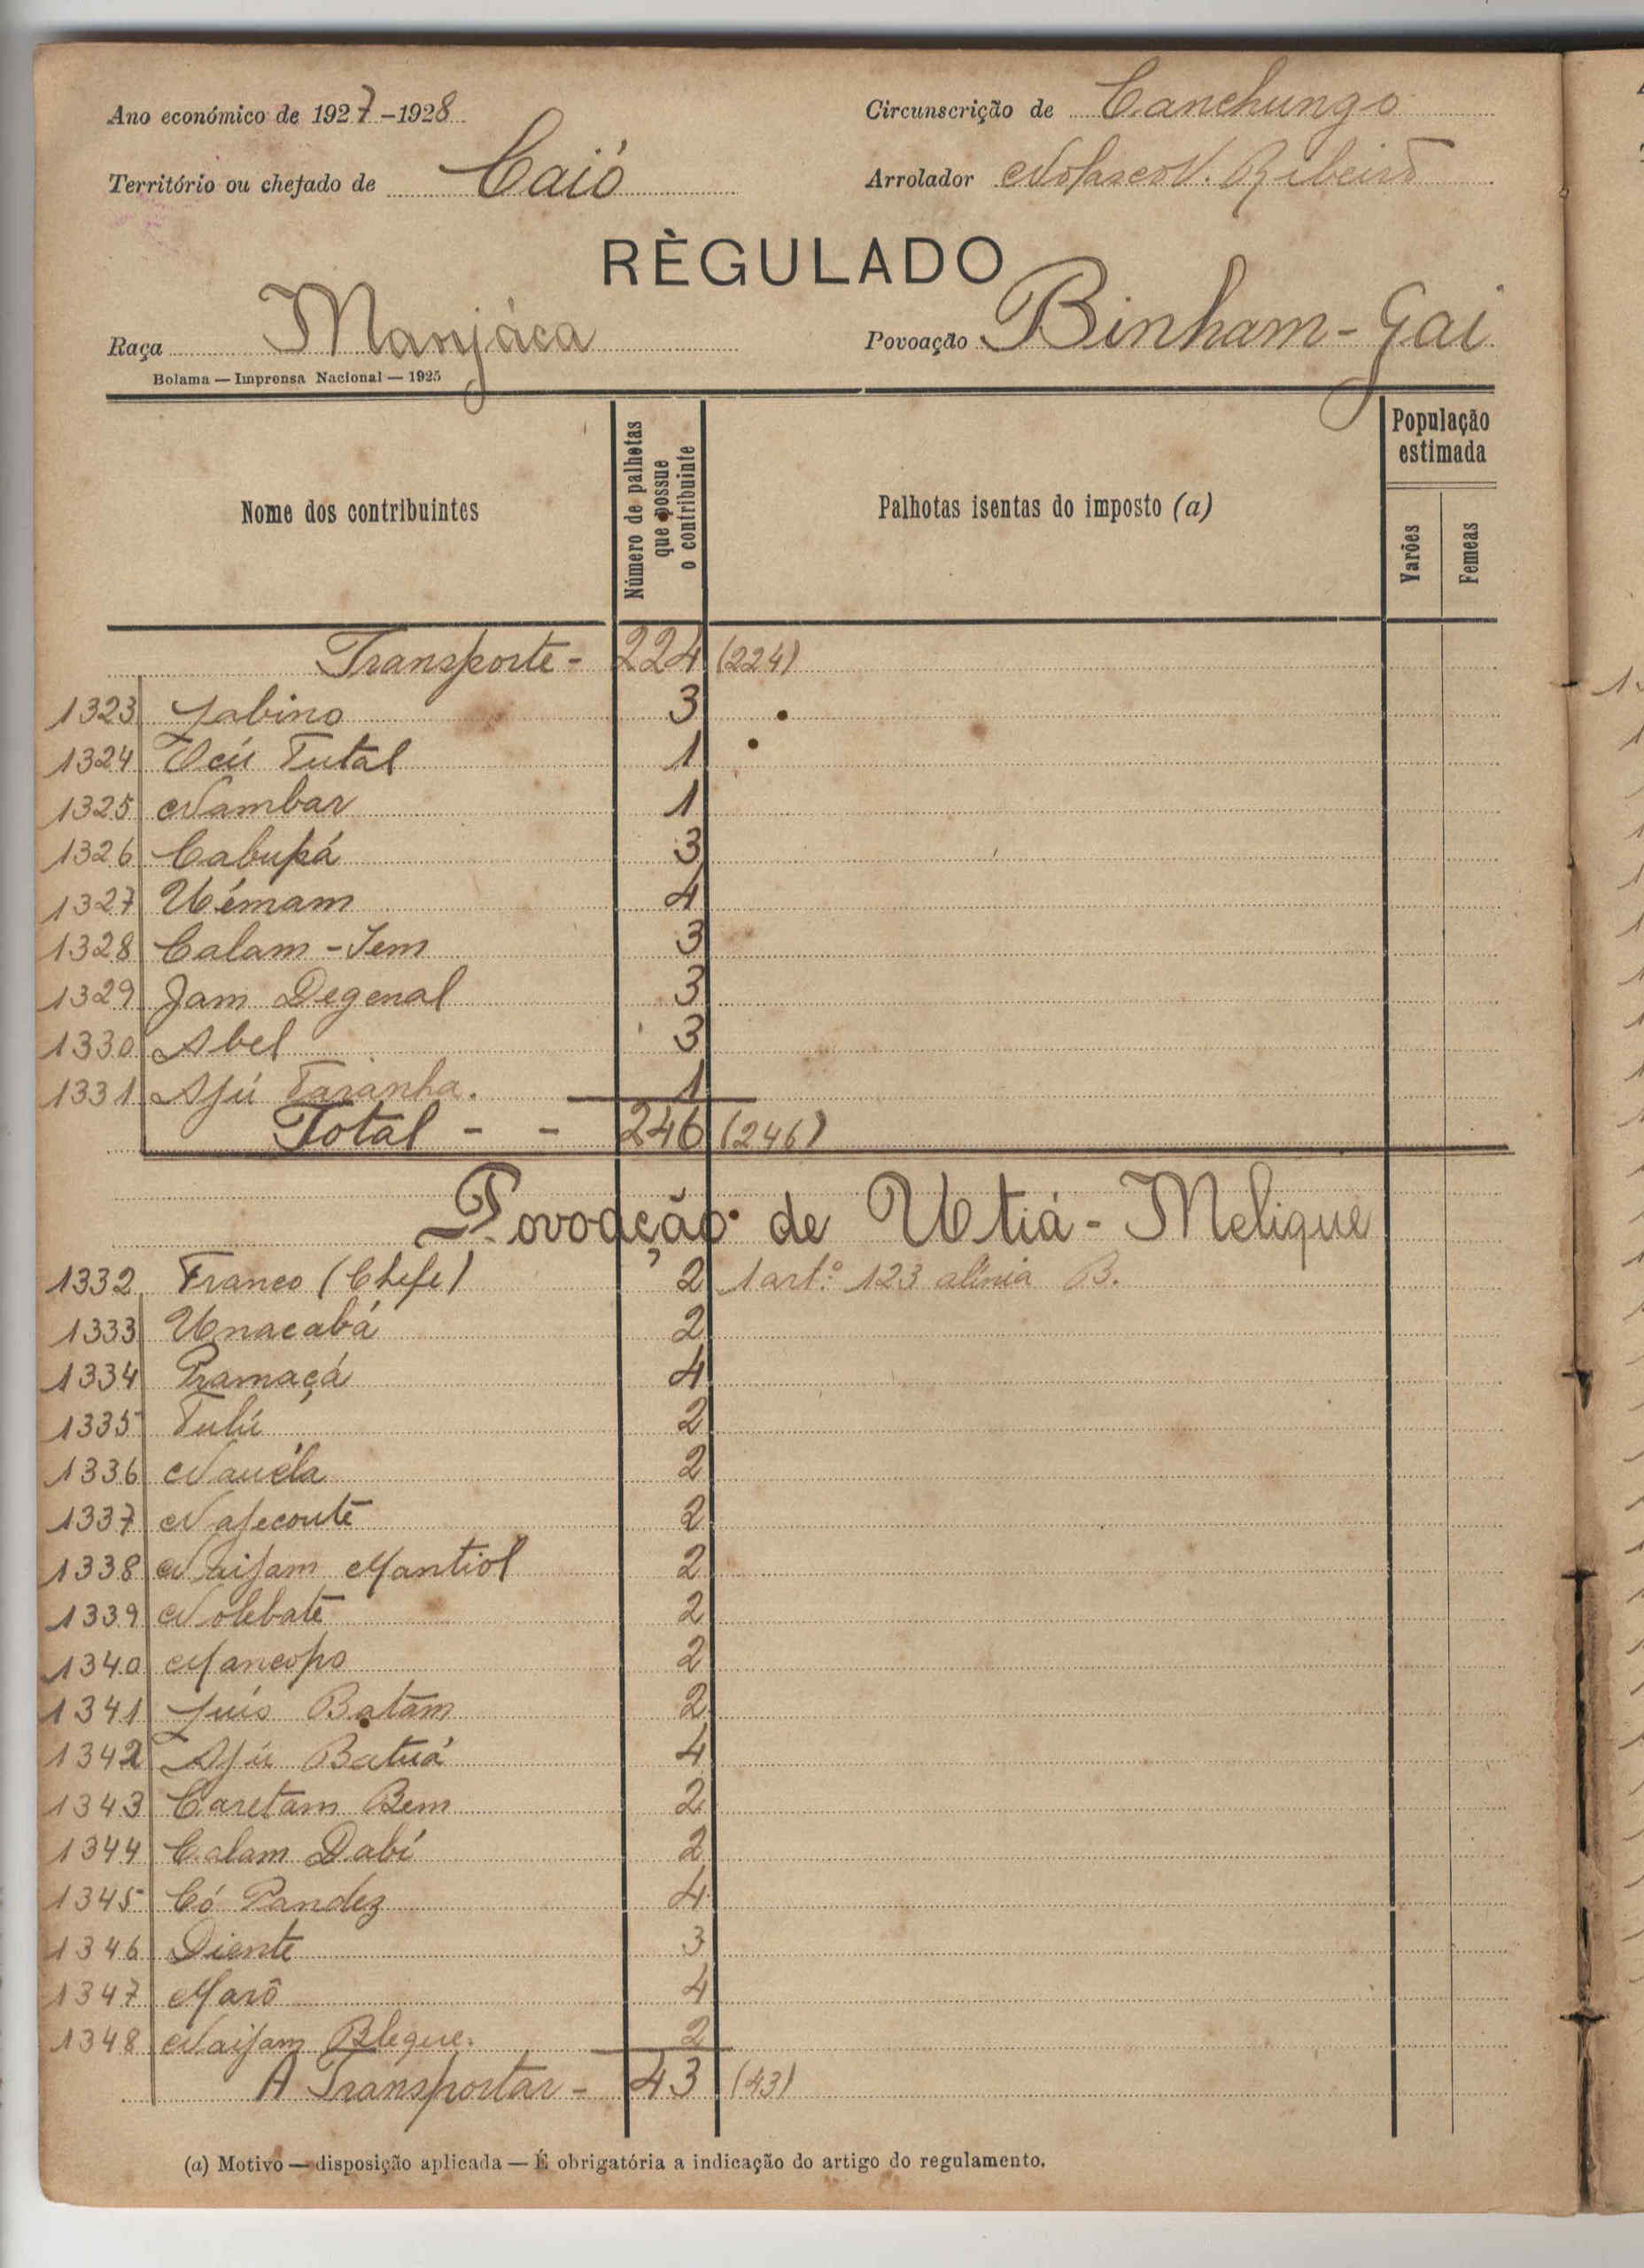 Ano económico de 1927-1928 Circunscrição de Canchungo
Território ou chefado de Caió Arrolador Nolasco N. Ribeiro
RÈGULADO
Raça Manjáca Povoação Binham-Gai
Bolama — Imprensa Nacional — 1925
Nome dos contribuintes Número de palhotas que possue o contribuinte Palhotas isentas do imposto (a) População estimada Varões Femeas
Transporte - 224 (224)
1323 Sabino 3
1324 Ucú Tutal 1
1325 Nambar 1
1326 Cabupá 3
1327 Uémam 4
1328 Calam-Tem 3
1329 Jam Degenal 3
1330 Abel 3
1331 Ajú Taranha. 1
Total - - 246 (246)
Povoação de Utiá-Melique
1332 Franco (Chefe) 2 1 art.º 123 alinia B.
1333 Unacabá 2
1334 Pramaçá 4
1335 Tulú 2
1336 Nauéla 2
1337 Najecoute 2
1338 Naijam Mantiol 2
1339 Nolebate 2
1340 Mancopo 2
1341 Luis Batam 2
1342 Ajú Batuá 4
1343 Caretam Bem 2
1344 Calam Dabí 2
1345 Có Pandez 4
1346 Diente 3
1347 Marô 4
1348 Naijam Bleque. 2
A Transportar - 43 (43)
(a) Motivo — disposição aplicada — É obrigatória a indicação do artigo do regulamento.